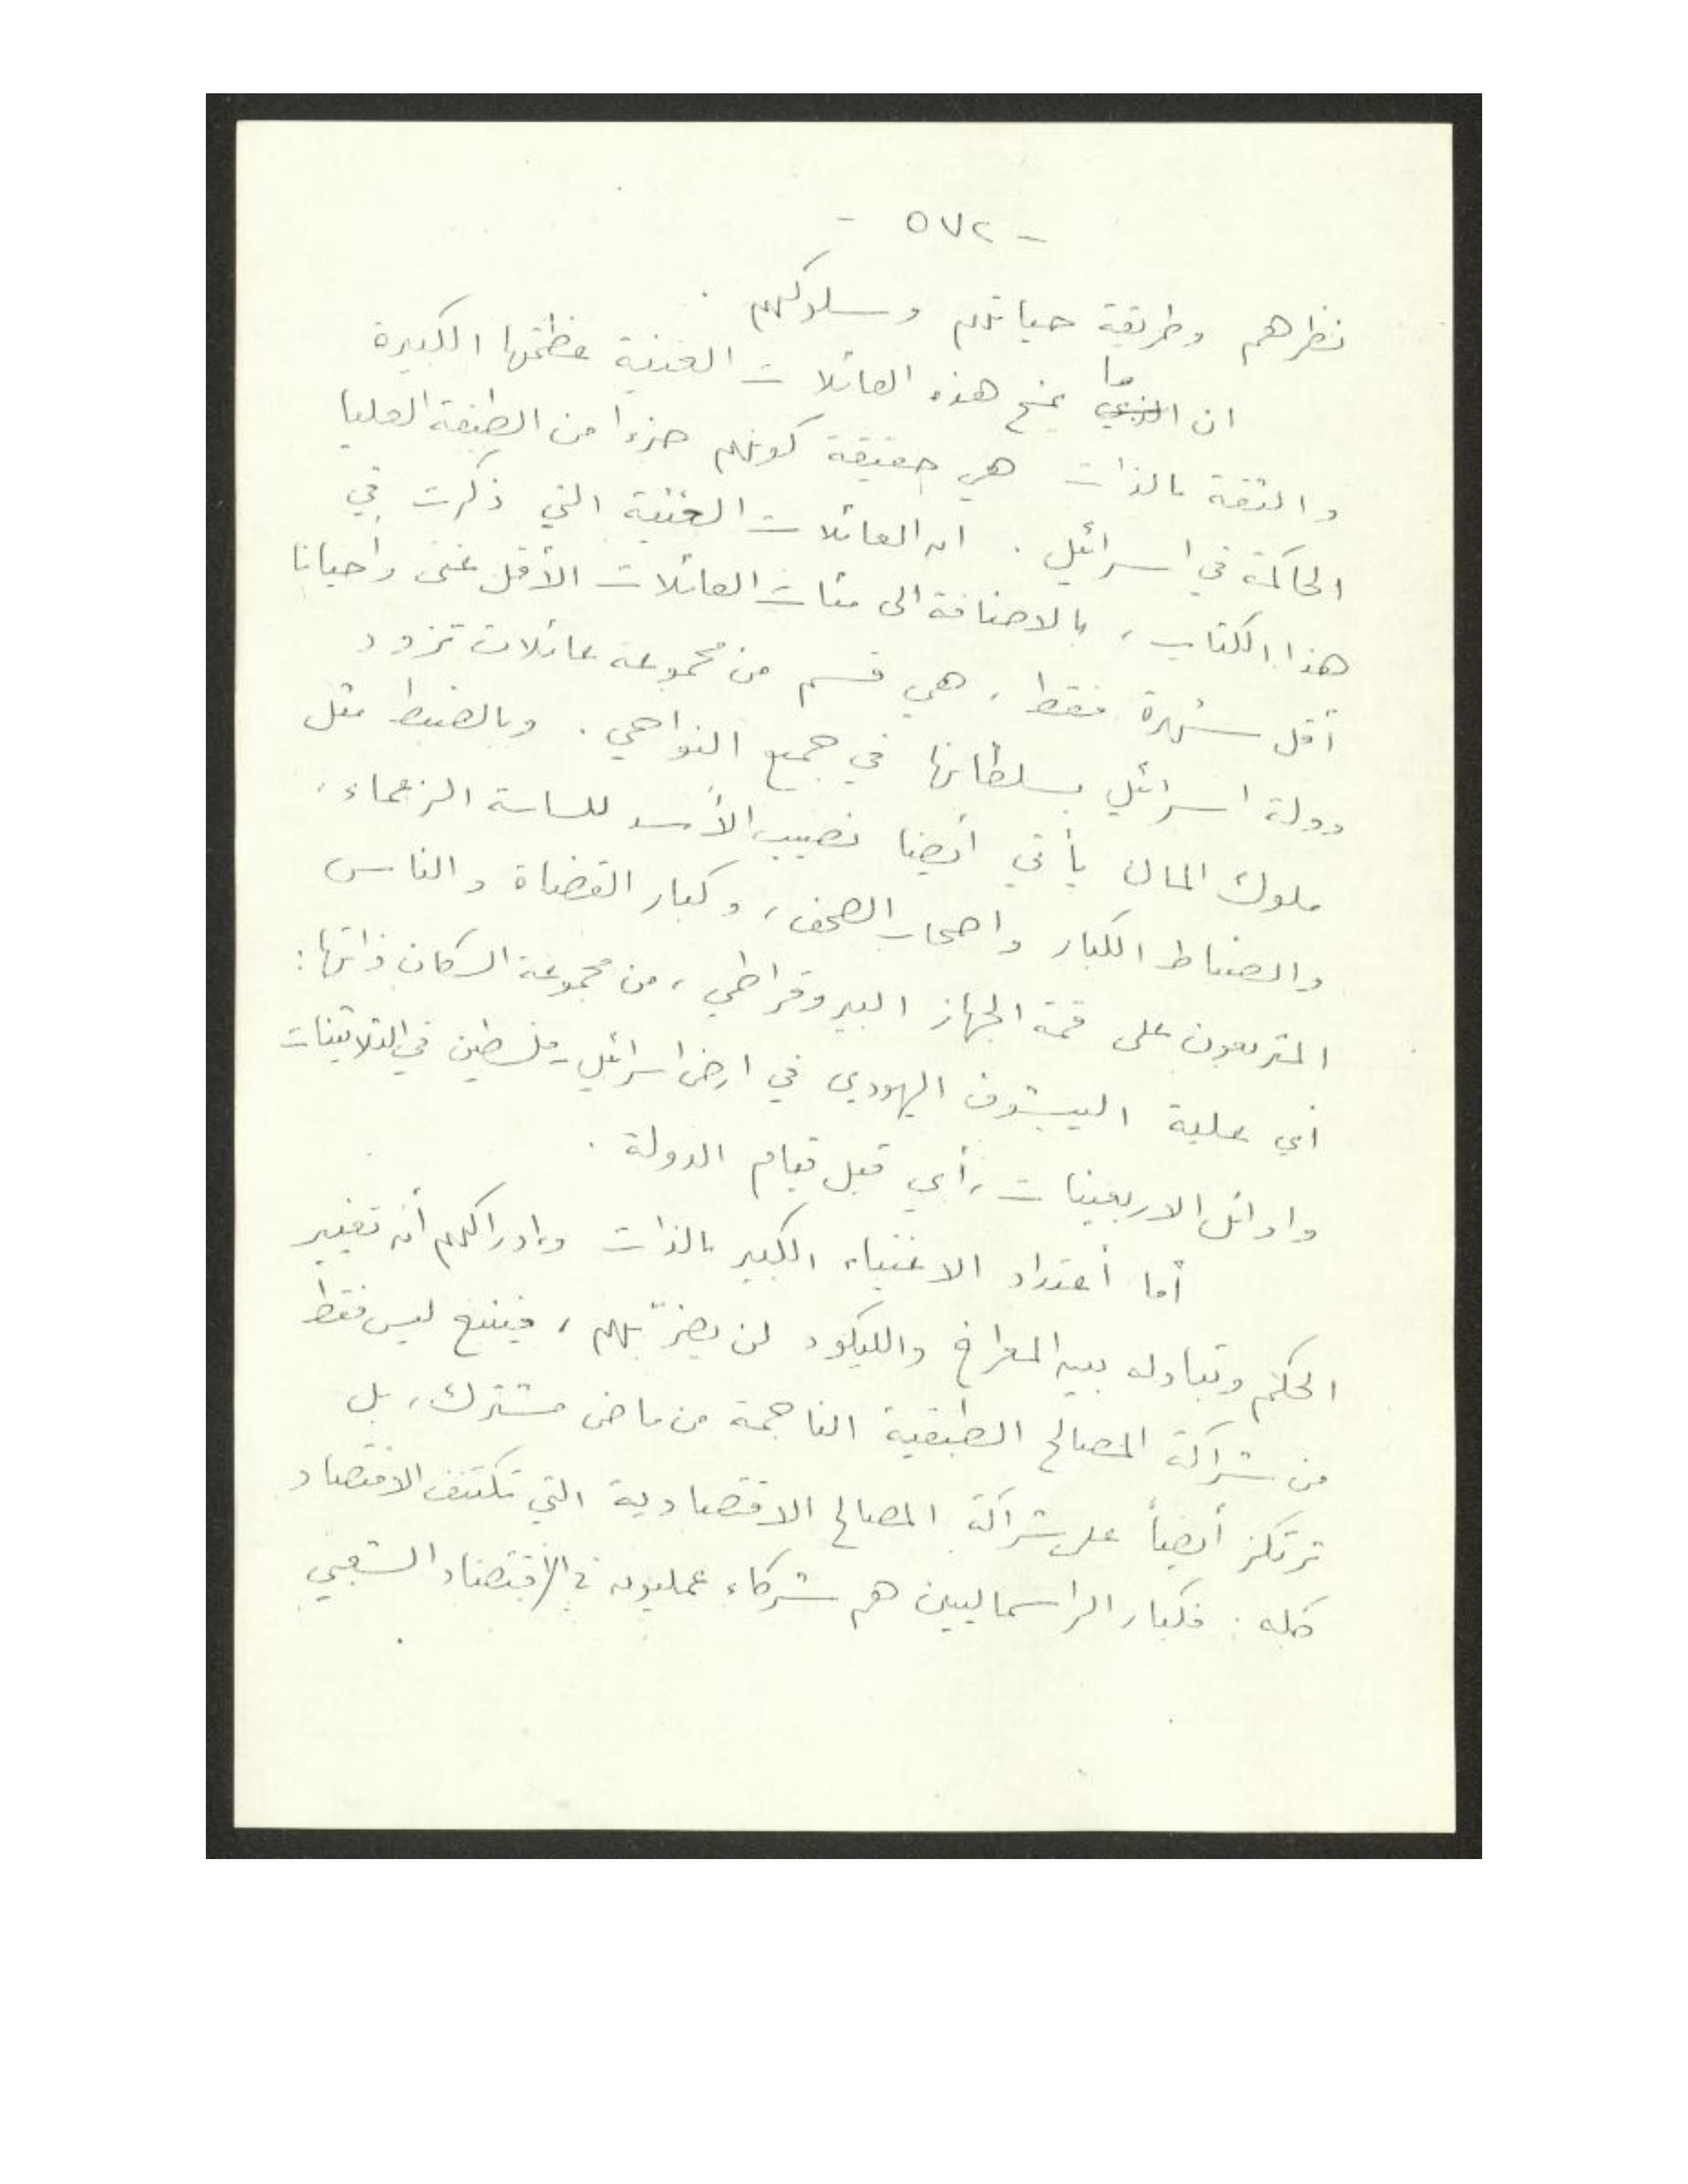 - ٥٧٢ -
نظرهم وطريقة حياتهم وسلوكهم .
ان ما يمنح هذه العائلات الغنية عظمتها الكبيرة
والثقة بالذات هي حقيقة كونهم جزءا من الطبقة العليا
الحاكمة في اسرائيل . ان العائلات الغنية التي ذكرت في
هذا الكتاب ، بالاضافة الى مئات العائلات الأقل غنى وأحيانا
أقل شهرة فقط ، هي قسم من مجموعة عائلات تزود
دولة اسرائيل بسلطانها في جميع النواحي . وبالضبط مثل
ملوك المال يأتي أيضا نصيب الأسد للساسة الزعماء ،
والضباط الكبار واصحاب الصحف ، وكبار القضاة والناس
المتربعون على قمة الجهاز البيروقراطي ، من مجموعة السكان ذاتها :
أي علية الييشوف اليهودي في ارض اسرائيل - فلسطين في الثلاثينات
واوائل الاربعينات ، أي قبل قيام الدولة .
أما أعتداد الاغنياء الكبير بالذات وادراكهم أن تغيير
الحكم وتبادله بين المعراخ والليكود لن يضرّ بهم ، فينبع ليس فقط
من شراكة المصالح الطبقية الناجمة من ماض مشترك ، بل
ترتكز أيضاً على شراكة المصالح الاقتصادية التي تكتنف الاقتصاد
كله . فكبار الراسماليين هم شركاء عمليون في الاقتصاد الشعبي